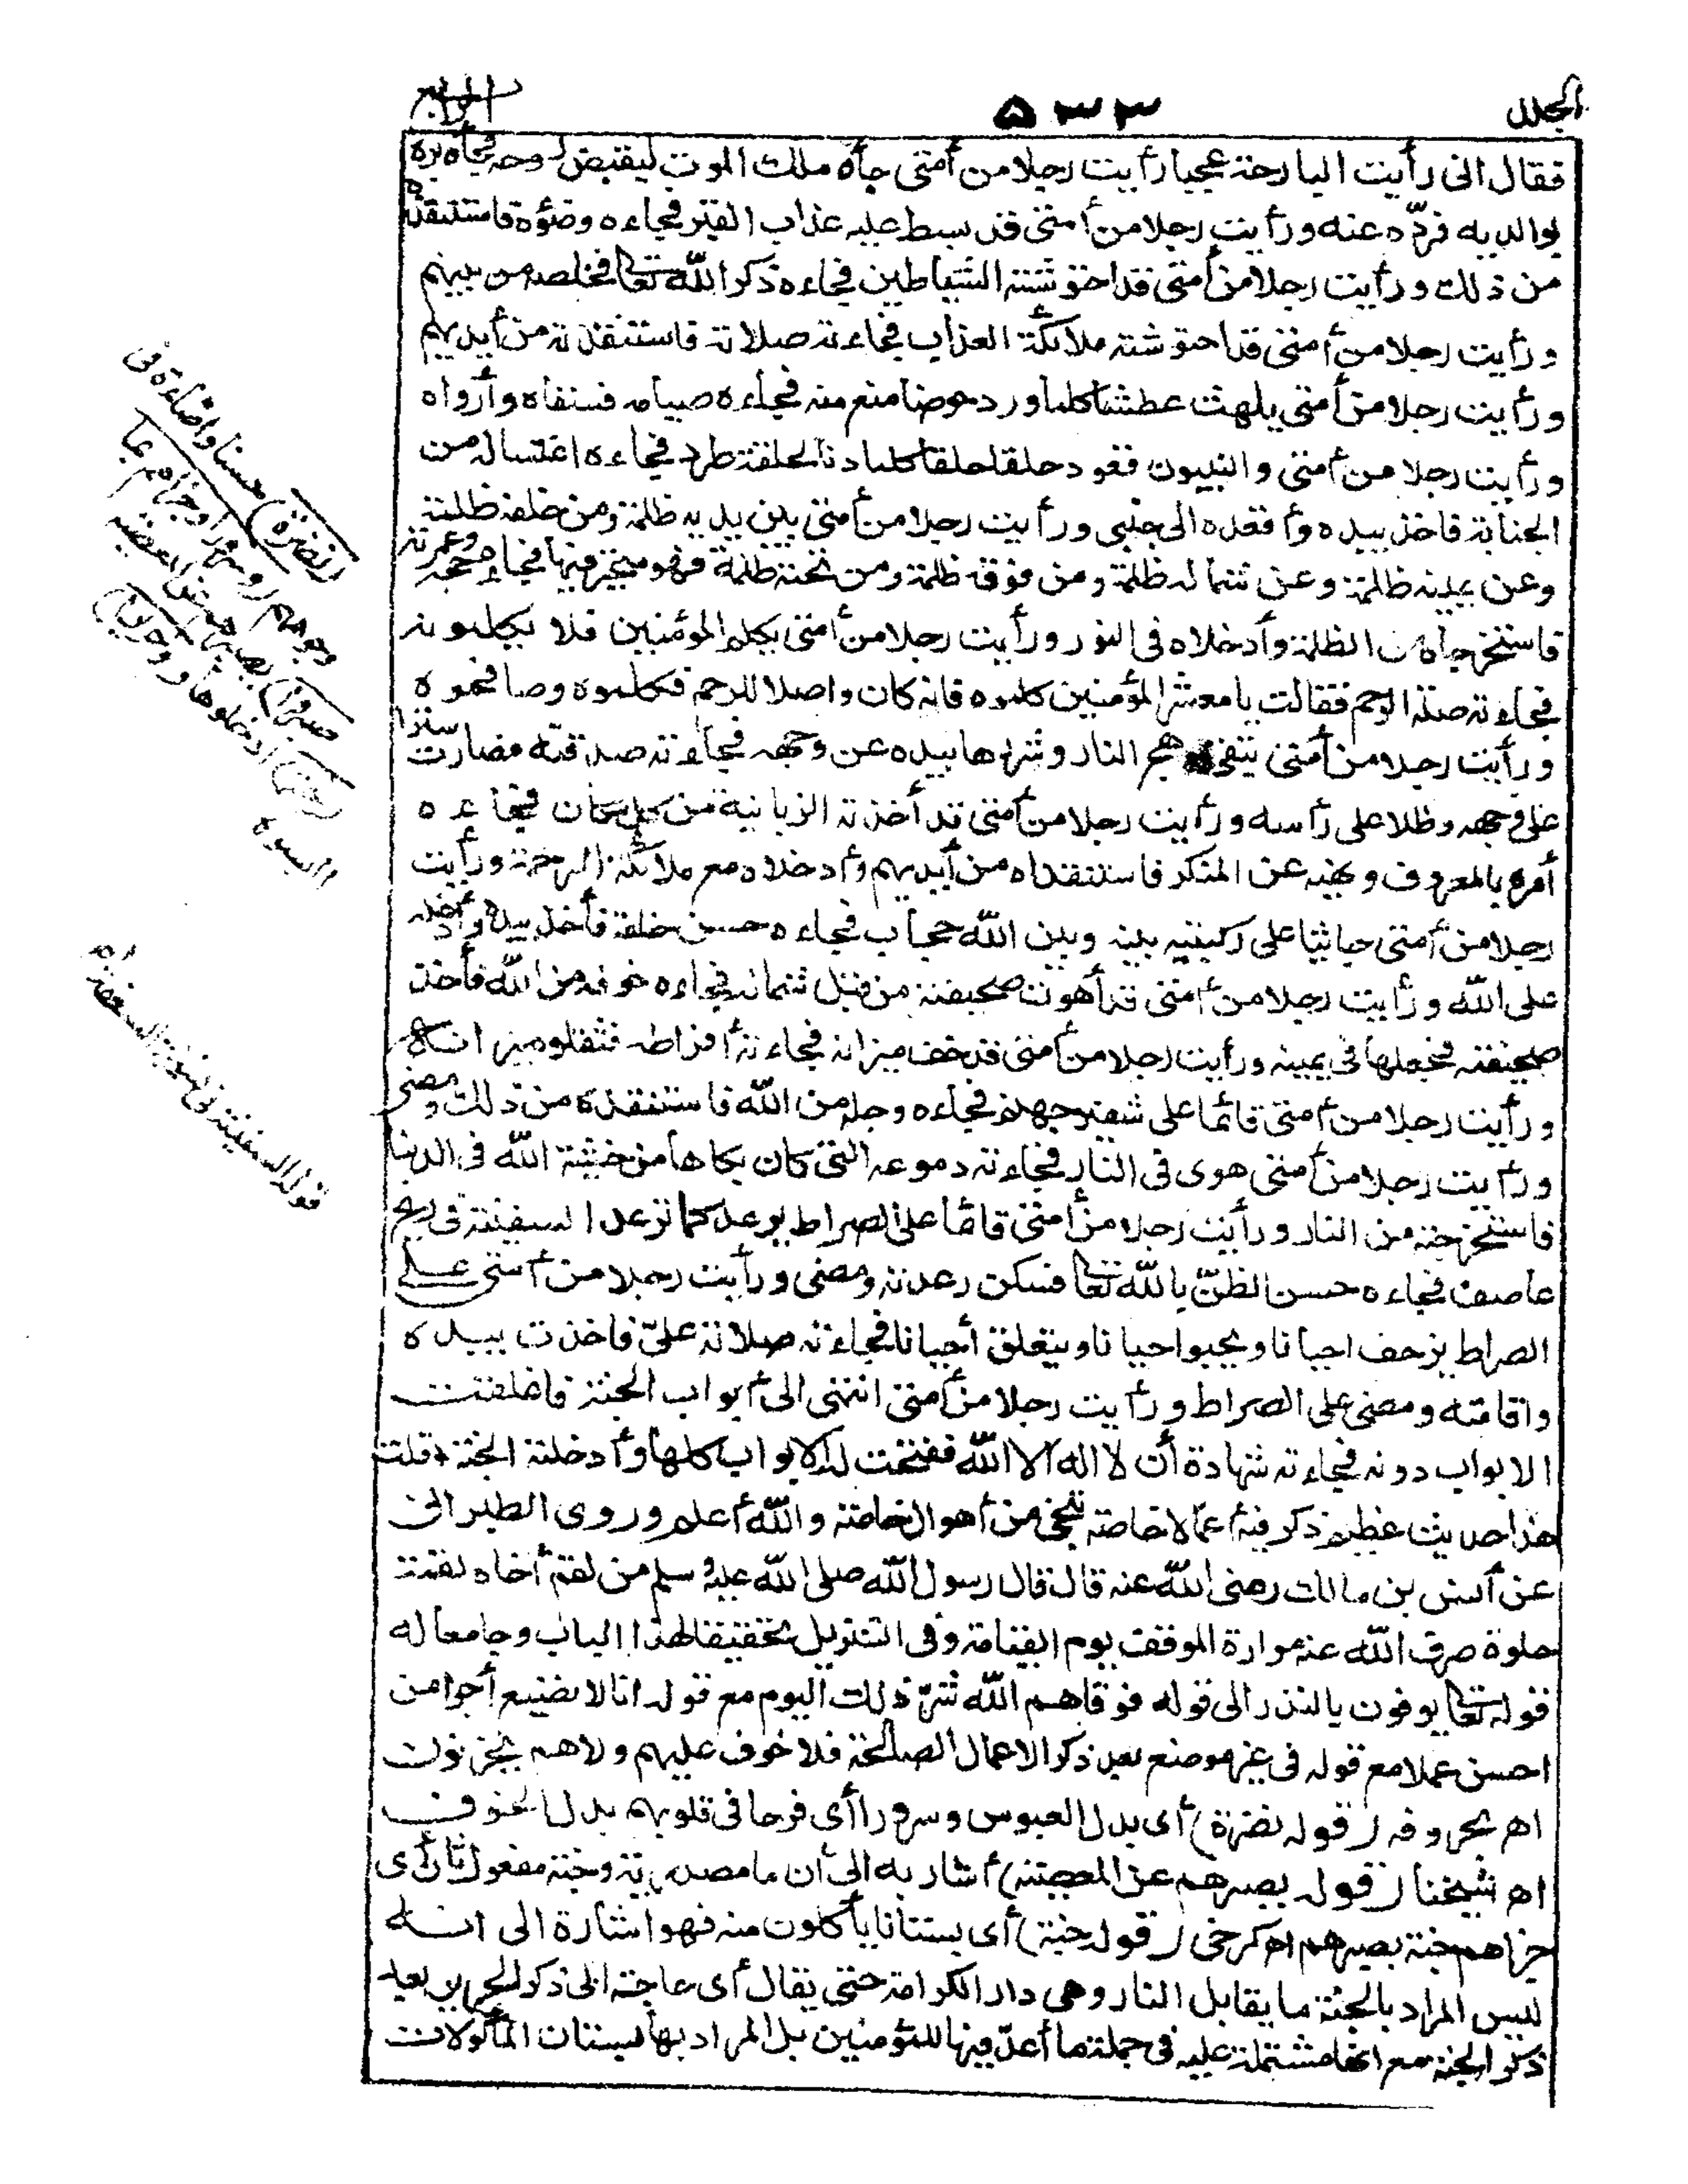 المجلد
٥٣٣
الرابع
فقال انى رأيت البارحة عجبا رأيت رجلا من أمتى جاءه ملك الموت ليقبض روحه فجاءه بره
بوالديه فردّه عنه ورأيت رجلا من أمتى قد بسط عليه عذاب القبر فجاءه وضؤه فاستنقذه
من ذلك ورأيت رجلا من أمتى قد احتوشته الشياطين فجاءه ذكر الله تعالى فخلصه من بينهم
ورأيت رجلا من أمتى قد احتوشته ملائكة العذاب فجاءته صلاته فاستنقذته من أيديهم
ورأيت رجلا من أمتى يلهث عطشا كلما ورد حوضا منع منه فجاءه صيامه فسقاه وأرواه
ورأيت رجلا من أمتى والنبيون قعود حلقا حلقا كلما دنا لحلقة طرد فجاءه اغتساله من
الجنابة فاخذ بيده وأقعده الى جنبى ورأيت رجلا من أمتى بين يديه ظلمة ومن خلفه ظلمة
وعن يمينه ظلمة وعن شماله ظلمة ومن فوقه ظلمة ومن تحته ظلمة فهو متحير فيها فجاء حجه وعمرته
فاستخرجاه من الظلمة وأدخلاه فى النور ورأيت رجلا من أمتى يكلم المؤمنين فلا يكلمونه
فجاءته صلة الرحم فقالت يا معشر المؤمنين كلموه فانه كان واصلا للرحم فكلموه وصافحوه
ورأيت رجلا من أمتى يتقى وهج النار وشررها بيده عن وجهه فجاءته صدقته فصارت سترا
على وجهه وظلا على رأسه ورأيت رجلا من أمتى قد أخذته الزبانية من كل مكان فجاءه
أمره بالمعروف ونهيه عن المنكر فاستنقذاه من أيديهم وأدخلاه مع ملائكة الرحمة ورأيت
رجلا من أمتى جاثيا على ركبتيه بينه وبين الله حجاب فجاءه حسن خلقه فأخذ بيده وأدخله
على الله ورأيت رجلا من أمتى قد أهوت صحيفته من قبل شماله فجاءه خوفه من الله فأخذ
صحيفته فجعلها فى يمينه ورأيت رجلا من أمتى قد خف ميزانه فجاءته أفراطه فثقلو ميزانه
ورأيت رجلا من أمتى قائما على شفير جهنم فجاءه وجله من الله فاستنقذه من ذلك ومضى
ورأيت رجلا من أمتى هوى فى النار فجاءته دموعه التى كان بكاها من خشية الله فى الدنيا
فاستخرجته من النار ورأيت رجلا من أمتى قائما على الصراط يرعد كما ترعد السفينة فى ريح
عاصف فجاءه حسن الظنّ بالله تعالى فسكن رعدته ومضى ورأيت رجلا من أمتى على
الصراط يزحف احيانا ويحبو احيانا ويتعلق أحيانا فجاءته صلاته علىّ فاخذت بيده
واقامته ومضى على الصراط ورأيت رجلا من أمتى انتهى الى أبواب الجنة فاغلقت
الابواب دونه فجاءته شهادة أن لا اله الا الله ففتحت له الابواب كلها وأدخلته الجنة قلت
هذا حديث عظيم ذكر فيه أعمالا خاصة تنجى من أهوال خاصة والله أعلم وروى الطبرانى
عن أنس بن مالك رضى الله عنه قال قال رسول الله صلى الله عليه وسلم من لقم أخاه لقمة
حلوة صرف الله عنه مرارة الموقف يوم القيامة وفى التنزيل تحقيقا لهذا الباب وجامعا له
قوله تعالى يوفون بالنذر الى قوله فوقاهم الله شرّ ذلك اليوم مع قوله انا لا نضيع أجر من
احسن عملا مع قوله فى غير موضع بعد ذكر الاعمال الصالحة فلا خوف عليهم ولا هم يحزنون
اهـ بحروفه (قوله نضرة) أى بدل العبوس وسرورا أى فرحا فى قلوبهم بدل الخوف
اهـ شيخنا (قوله بصبرهم عن المعصية) أشار به الى أن ما مصدرية وجنة مفعول ثان أى
جزاهم جنة بصبرهم اهـ كرخى (قوله جنة) أى بستانا يأكلون منه فهو اشارة الى انه
ليس المراد بالجنة ما يقابل النار وهى دار الكرامة حتى يقال أى حاجة الى ذكر الحرير بعد
ذكر الجنة مع انها مشتملة عليه فى جملة ما أعدّ فيها للمؤمنين بل المراد بها بستان المأكولات
(نضرة) حسنا واضاءة فى
وجوههم (وسرورا وجزاهم بما
صبروا) بصبرهم عن المعصية
(جنة) ادخلوها (وحريرا)
البسوه
قوله السفينة فى